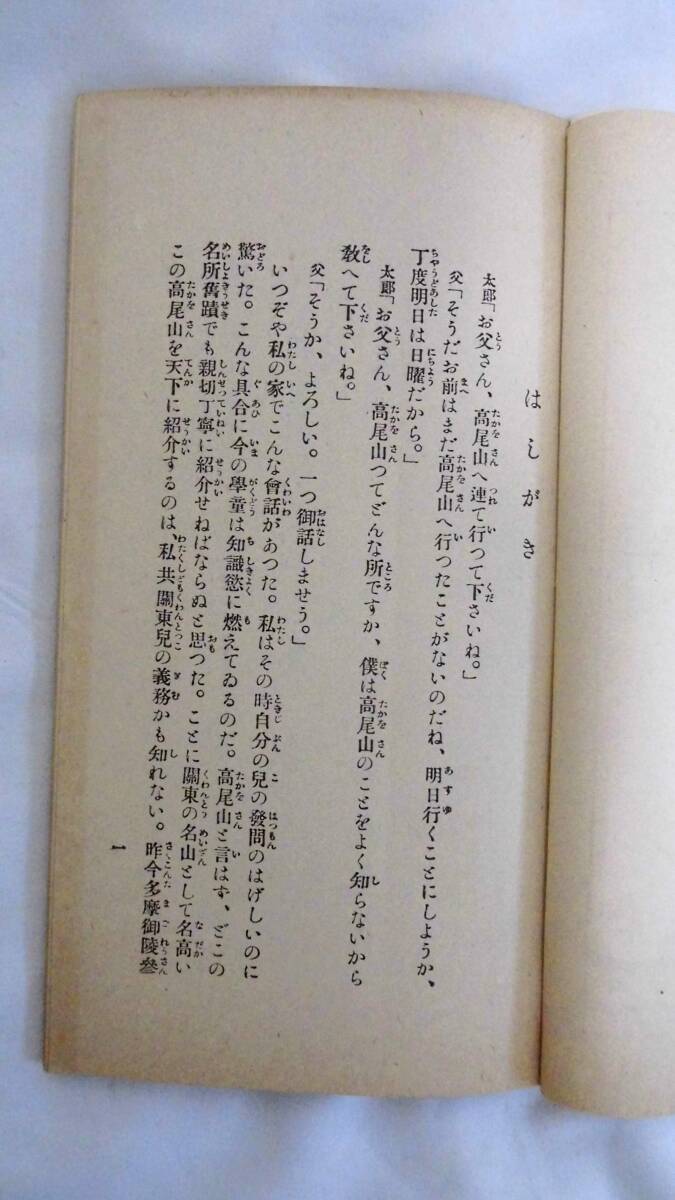 はしがき
太郎「お父さん、高尾山へ連て行つて下さいね。」
父「そうだお前はまだ高尾山へ行つたことがないのだね、明日行くことにしようか、
丁度明日は日曜だから。」
太郎「お父さん、高尾山つてどんな所ですか、僕は高尾山のことをよく知らないから
敎へて下さいね。」
父「そうか、よろしい。一つ御話しませう。」
いつぞや私の家でこんな會話があつた。私はその時自分の兒の發問のはげしいのに
驚いた。こんな具合に今の學童は知識慾に燃えてゐるのだ。高尾山と言はず、どこの
名所舊蹟でも親切丁寧に紹介せねばならぬと思つた。ことに關東の名山として名高い
この高尾山を天下に紹介するのは、私共關東兒の義務かも知れない。昨今多摩御陵叅
一